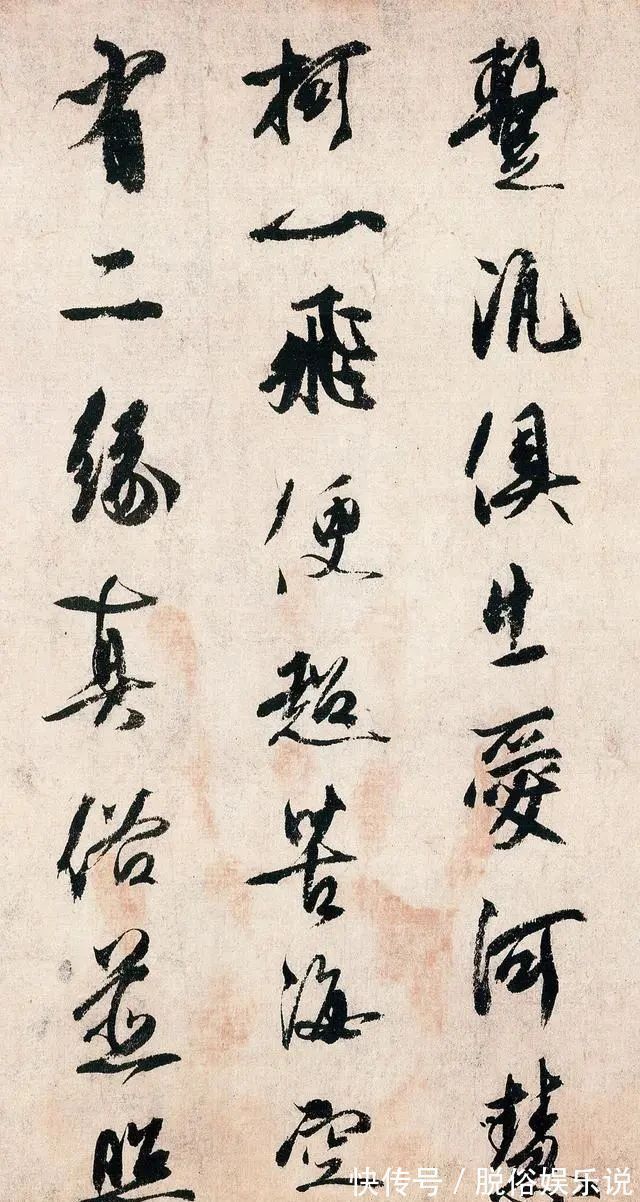 蹔汎俱生愛河慧
柯一飛便超苦海空
有二緣真俗並照
快传号 / 脱俗娱乐说